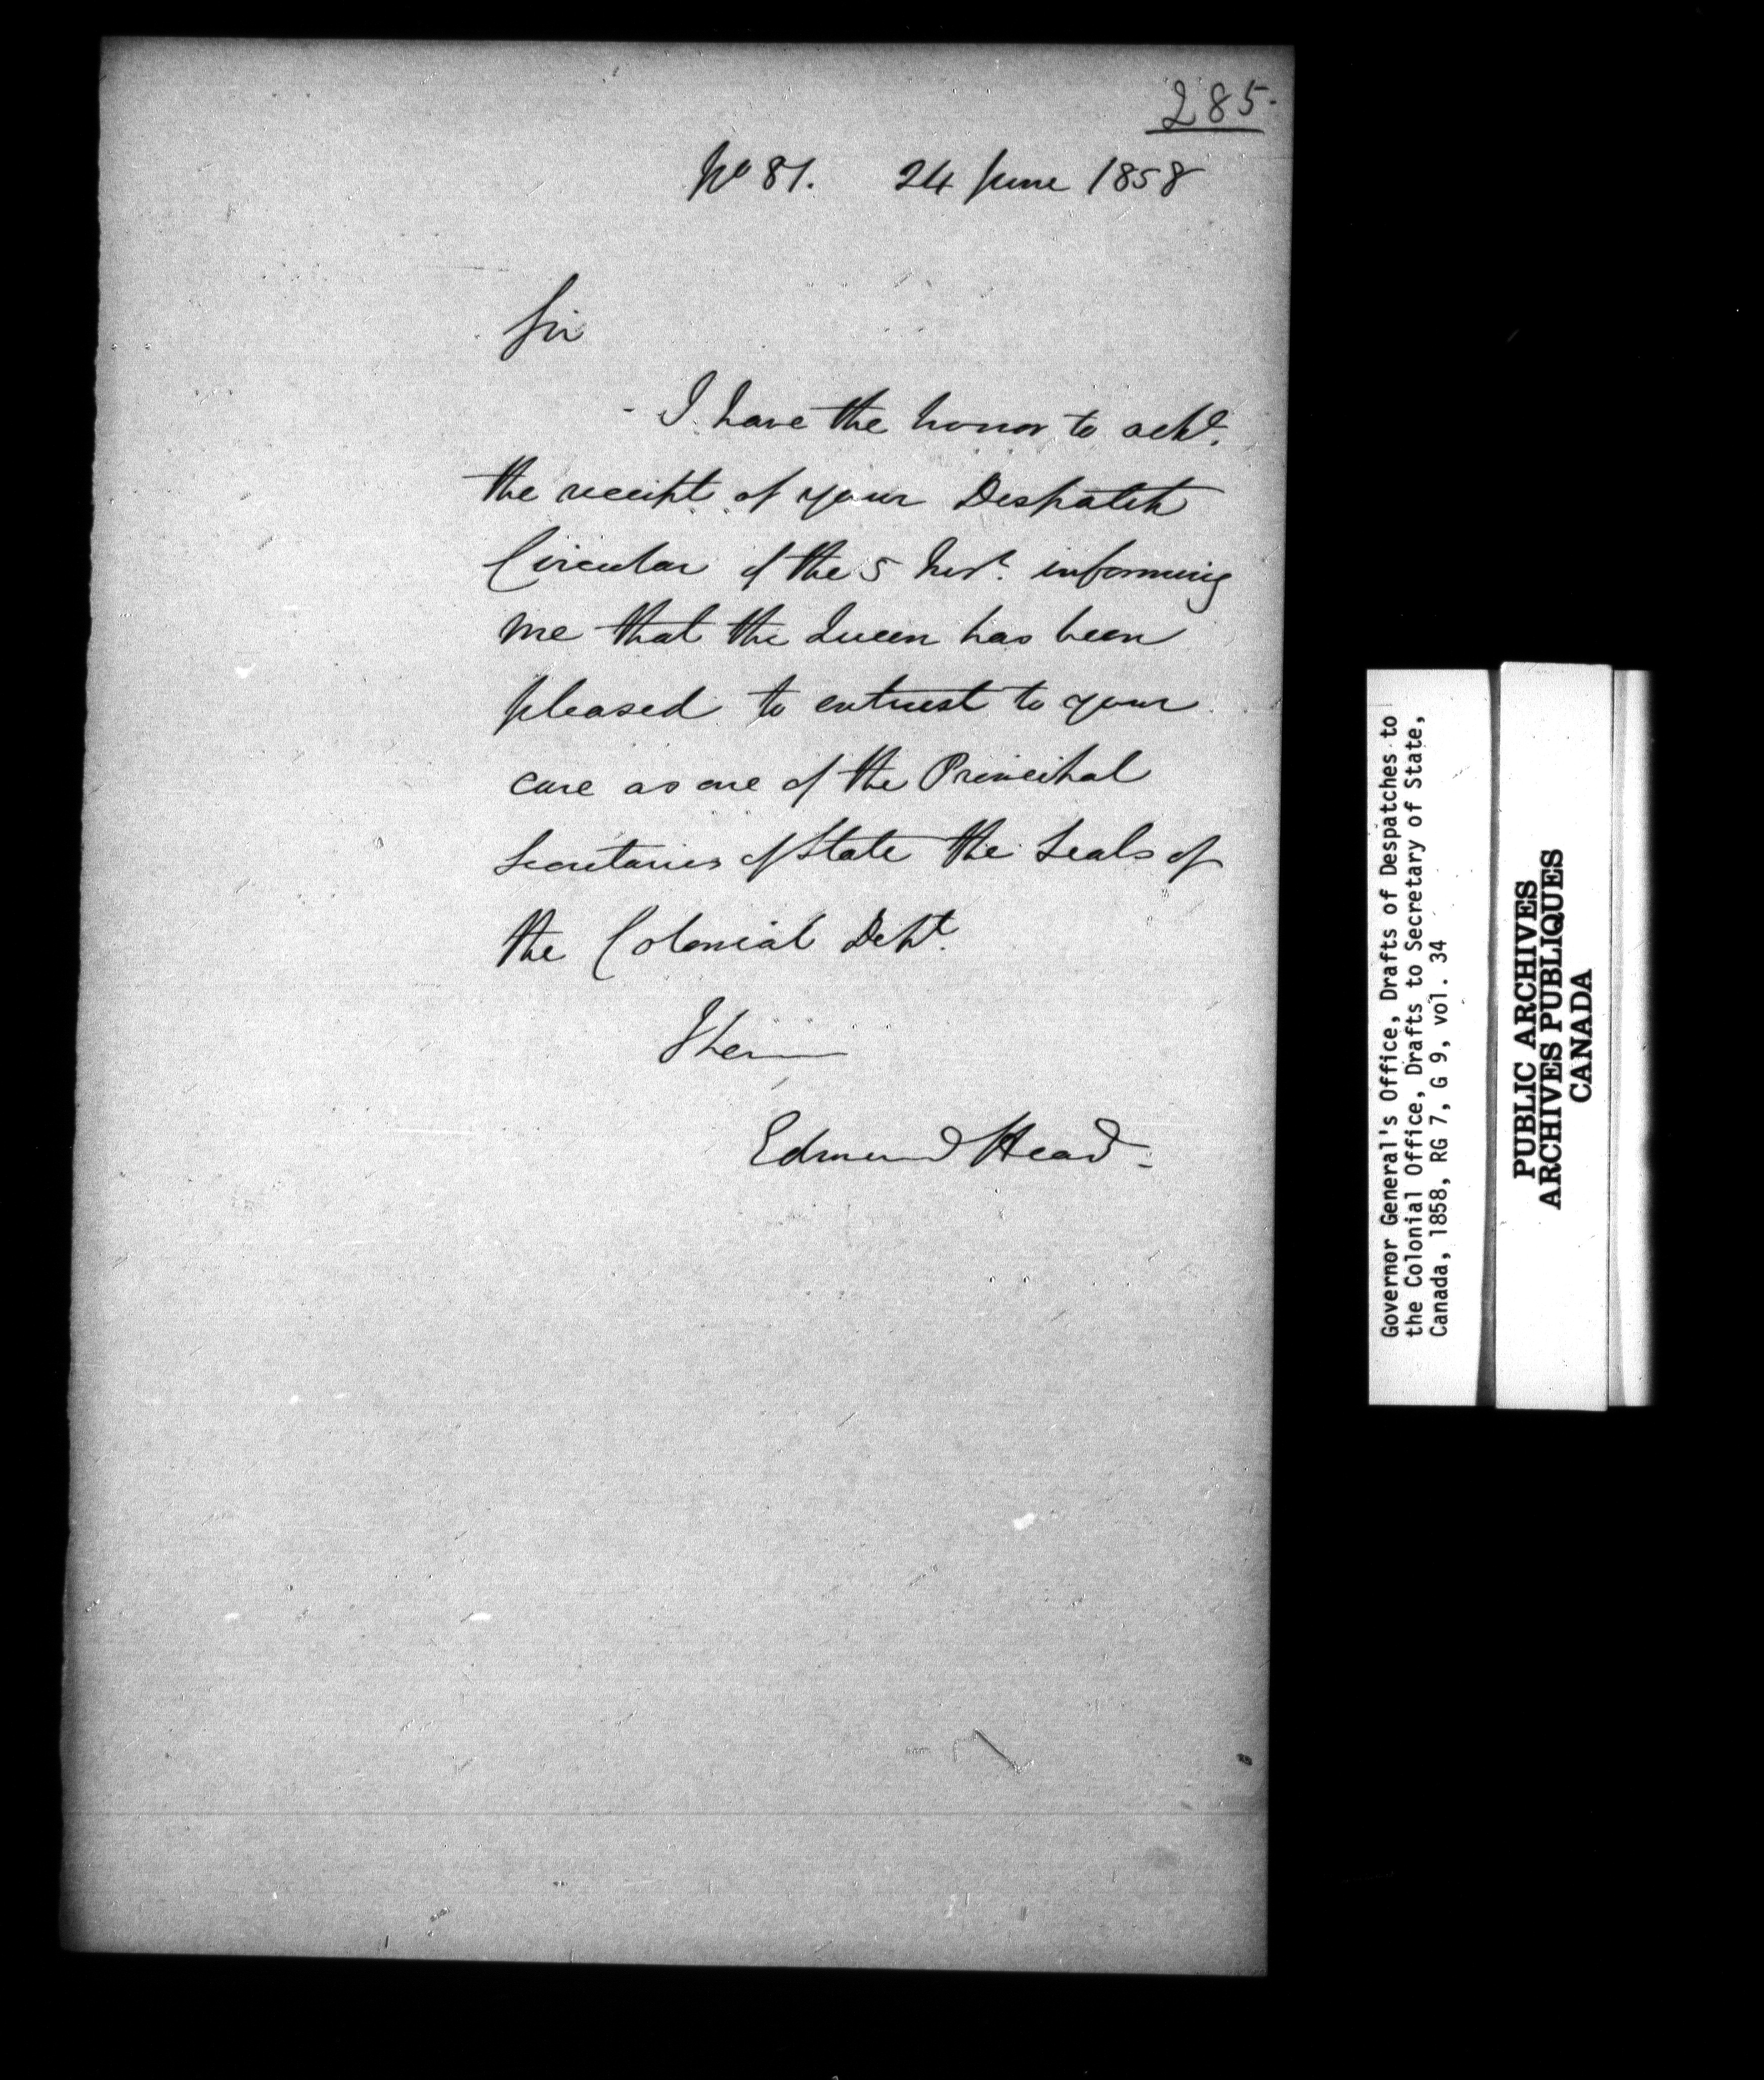 285.
No 81. 24 June 1858
Sir
I have the honor to ackE.
the receipt of your Despatch
Circular of the 5 Inst. informing
me that the Queen has been
pleased to entrust to your
care as one of the Principal
Secretaries of State the Seals of
the Colonial Dept.
I have
Edmund Head.
Governor General's Office, Drafts of Despatches to
the Colonial Office, Drafts to Secretary of State,
Canada, 1858, RG 7, G 9, vol. 34
PUBLIC ARCHIVES
ARCHIVES PUBLIQUES
CANADA